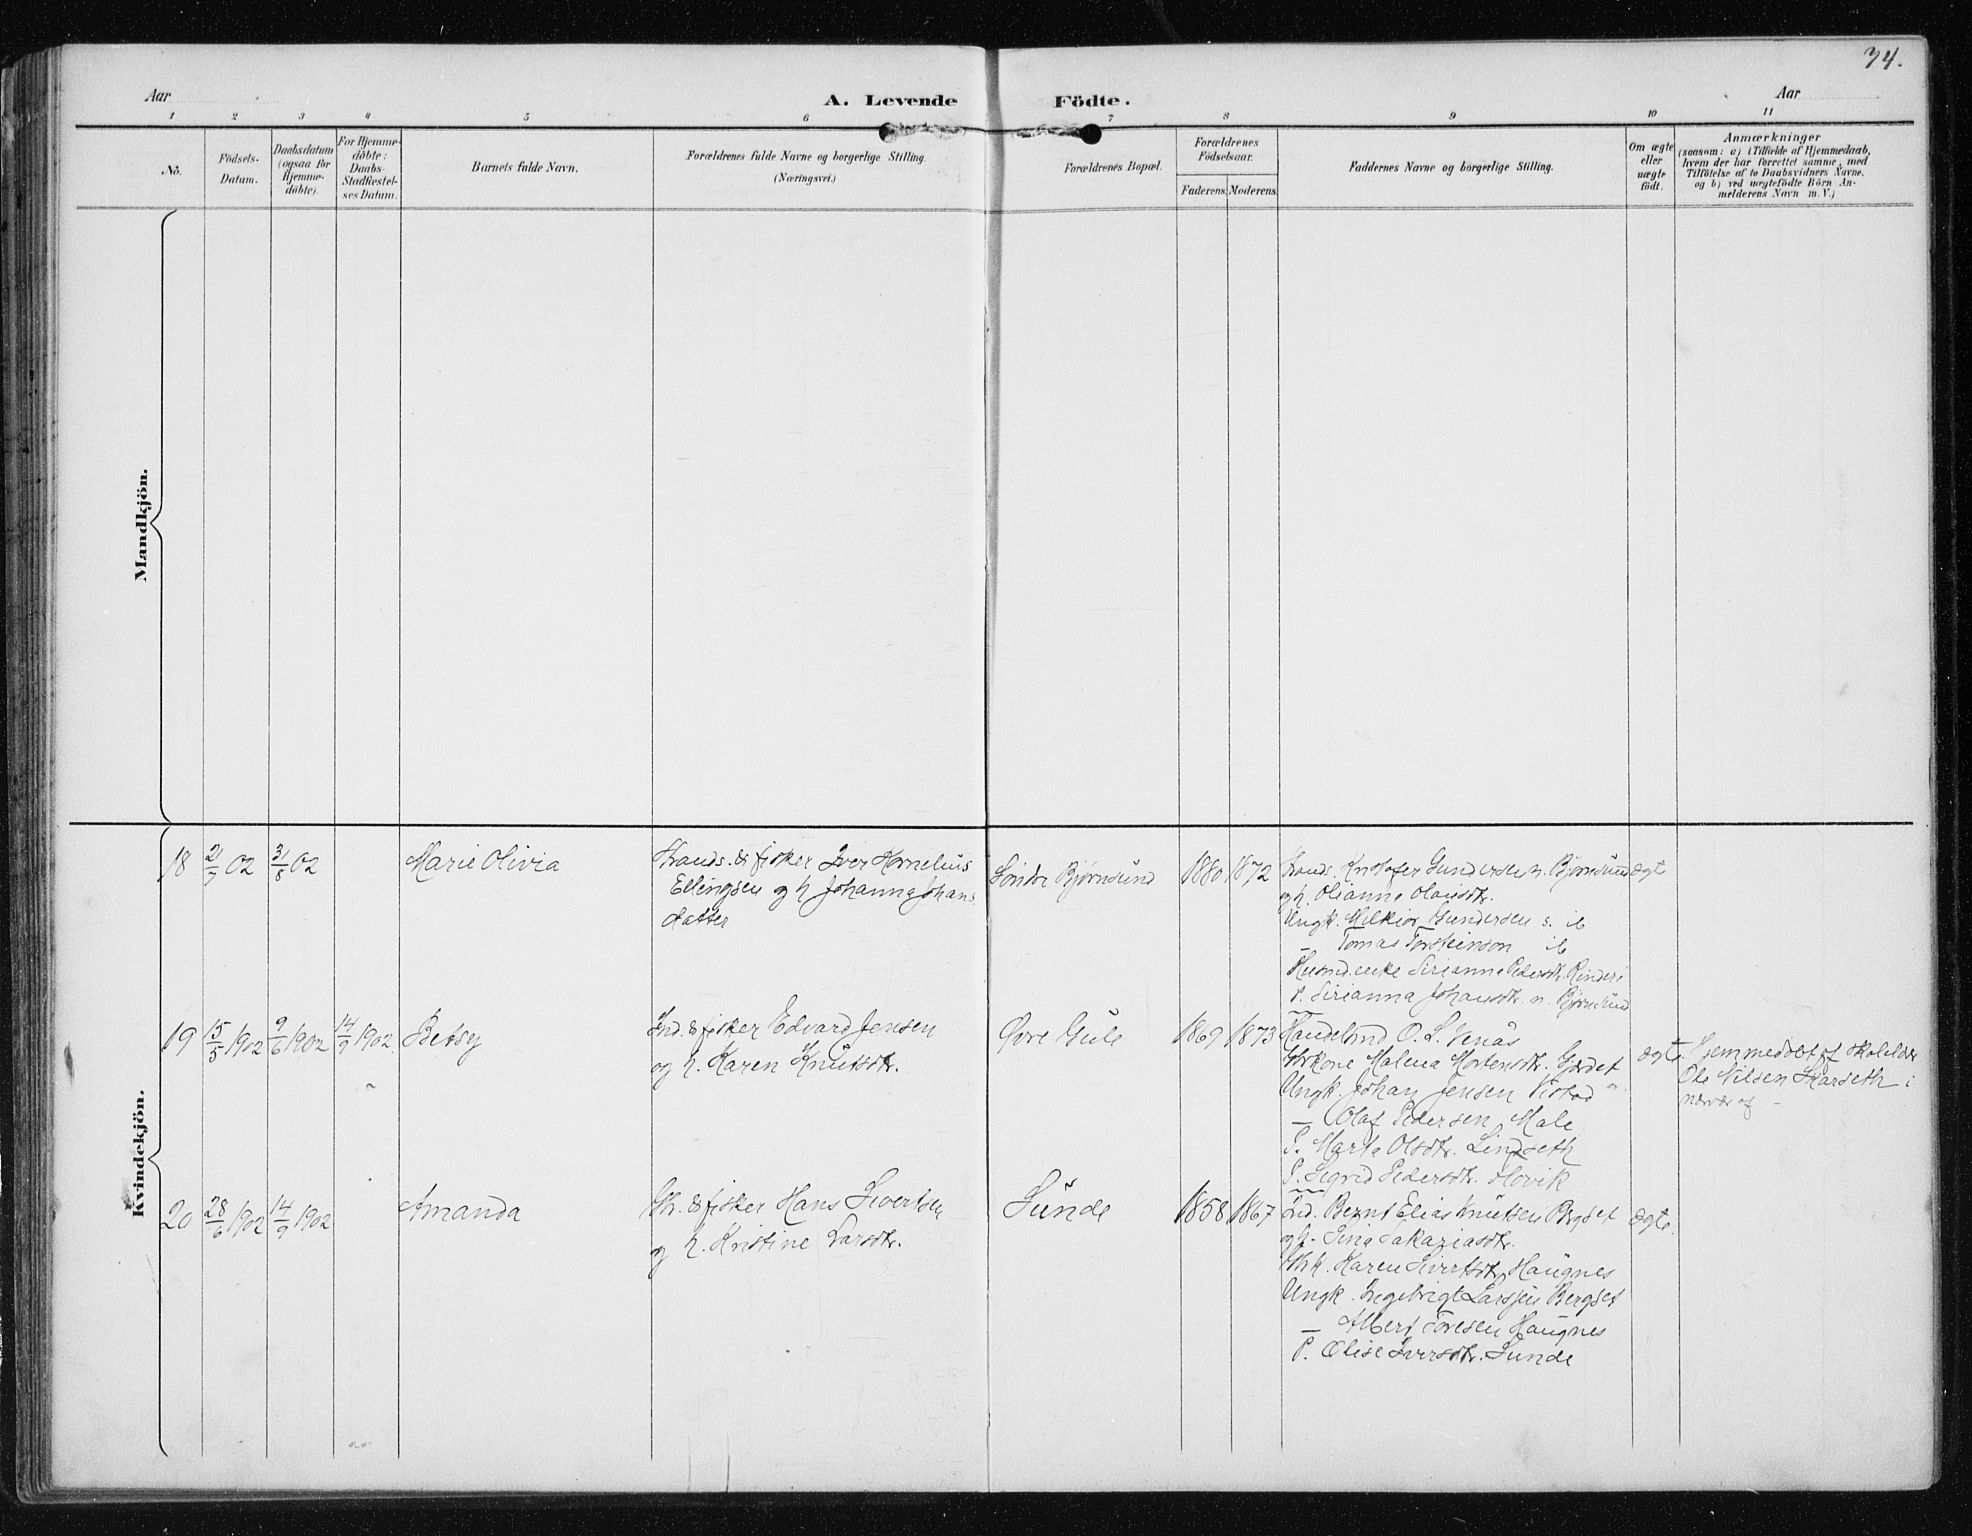 34.
Aar
A. Levende Födte.
Aar
1 2 3 4 5 6 7 8 9 10 11
No.
Födsels-
Datum.
Daabsdatum
(ogsaa for
Hjemme-
döbte).
For Hjemme-
döbte:
Daabs-
Stadfæstel-
ses Datum.
Barnets fulde Navn.
Forældrenes fulde Navne og borgerlige Stilling.
(Næringsvei.)
Forældrenes Bopæl.
Forældrenes
Födselsaar.
Faderens. Moderens.
Faddernes Navne og borgerlige Stilling.
Om ægte
eller
uægte
født.
Anmærkninger
(saasom: a) i Tilfælde af Hjemmedaab,
hvem der har forrettet samme, med
Tilföielse af to Daabsvidners Navne,
og b) ved uægtefödte Börn An-
melderens Navn m. V.)
Mandkjön.
Kvindekjön.
18 02 31/8 02 Marie Olivia
Strands. & fisker Iver Kornelius
Ellingsen og h Johanna Johans
datter
Söndre Bjørnsund 1880 1872
Strands. Kristofer Gundersen n. Bjørnsund ægte
g h. Olianna Olausdtr.
Ungk. Melkior Gundersen s. ib
— Tomas Torsteinson ib
Husmd.enke Sirianna Pedersdtr.
P. Sirianna Johansdtr. n. Bjørnsund
19 15/5 1902 9/6 1902 14/9 1902. Betsy
Ind. & fisker Edvard Jensen
og h. Karen Knutsdtr.
Øvre Gule 1869 1873
Handelsmd O. L. Venås
Malena Mortensdtr. Gjerdet
Ungk. Johan Jensen Vistad
— Olaf Pedersen Male
P. Marta Olsdtr. Lindseth
P. Sigrid Pedersdtr. Hovik
ægte. Hjemmedøbt af skolelær
Ole Nilsen Skarseth i
nærvær af —
20 28/6 1902 14/9 1902 Amanda
Str. & fisker Hans Sivertsen
g h. Kristine Larsdtr.
Sunde 1858 1867
Ind. Bernt Elias Knutsen Bergset ægte.
g h. Sakariasdtr.
Karen Sivertsdtr. Haugnes
Ungk. Ingebrigt Larssen Bergset
— Albert Toresen Haugnes
P. Olise Iversdtr. Sunde